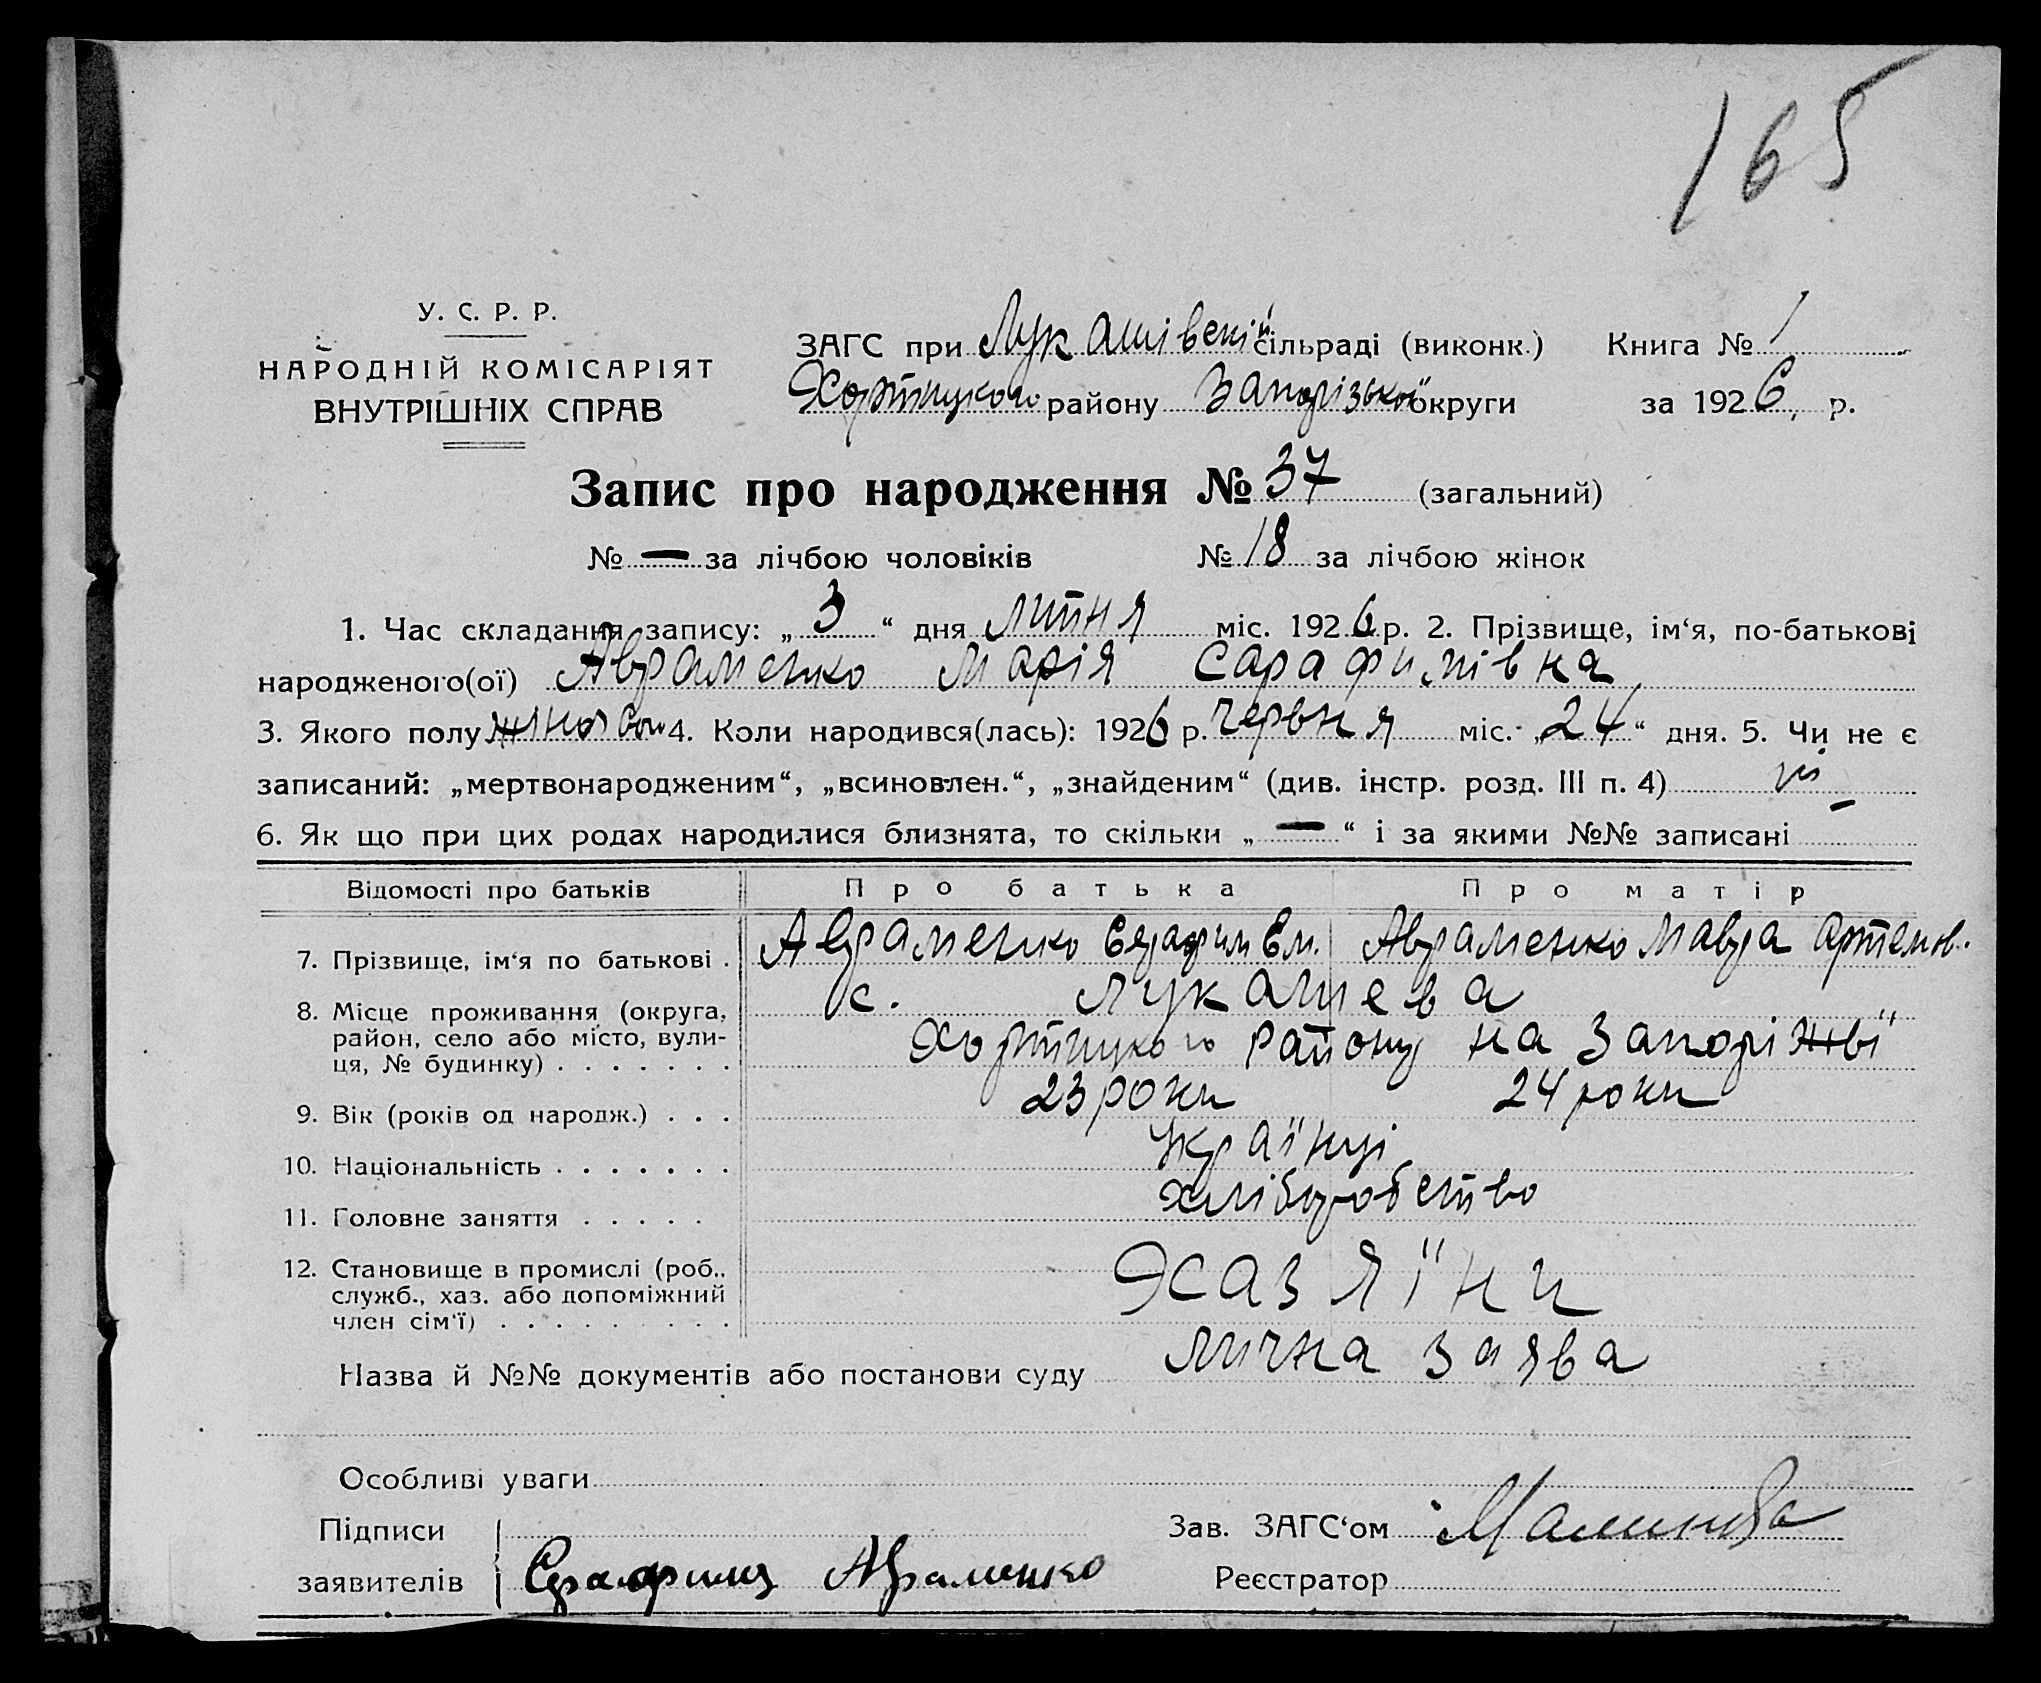 165
У. С. Р. Р.
НАРОДНІЙ КОМІСАРІЯТ
ВНУТРІШНІХ СПРАВ
ЗАГС при Лукашівській сільраді (виконк.) Книга № 1
Хортицького району Запорізької округи за 1926, р.
Запис про народження № 37 (загальний)
№ — за лічбою чоловіків № 18 за лічбою жінок
1. Час складання запису: „3“ дня липня міс. 1926 р. 2. Прізвище, ім‘я, по-батькові
народженого(ої) Авраменко Марія Сарафимівна
3. Якого полу 4. Коли народився(лась): 1926 р. червня міс. „24“ дня. 5. Чи не є
записаний: „мертвонародженим“, „всиновлен.“, „знайденим“ (див. інстр. розд. III п. 4) ні
6. Як що при цих родах народилися близнята, то скільки „—“ і за якими №№ записані —
Відомості про батьків Про батька Про матір
7. Прізвище, ім‘я по батькові . Авраменко Серафим Ем. Авраменко Мавра Артемов.
8. Місце проживання (округа,
район, село або місто, вули-
ця, № будинку) . . . . . . .
с. Лукашева
Хортицького району на Запоріжжі
9. Вік (років од народж.) . . . 23 роки 24 роки
10. Національність . . . . . . . Українці
11. Головне заняття . . . . . хліборобство
12. Становище в промислі (роб.,
служб., хаз. або допоміжний
член сім‘ї) . . . . . . . . .
Хазяїни
Назва й №№ документів або постанови суду лична заява
Особливі уваги
Підписи
заявителів Серафим Авраменко
Зав. ЗАГС‘ом
Реєстратор